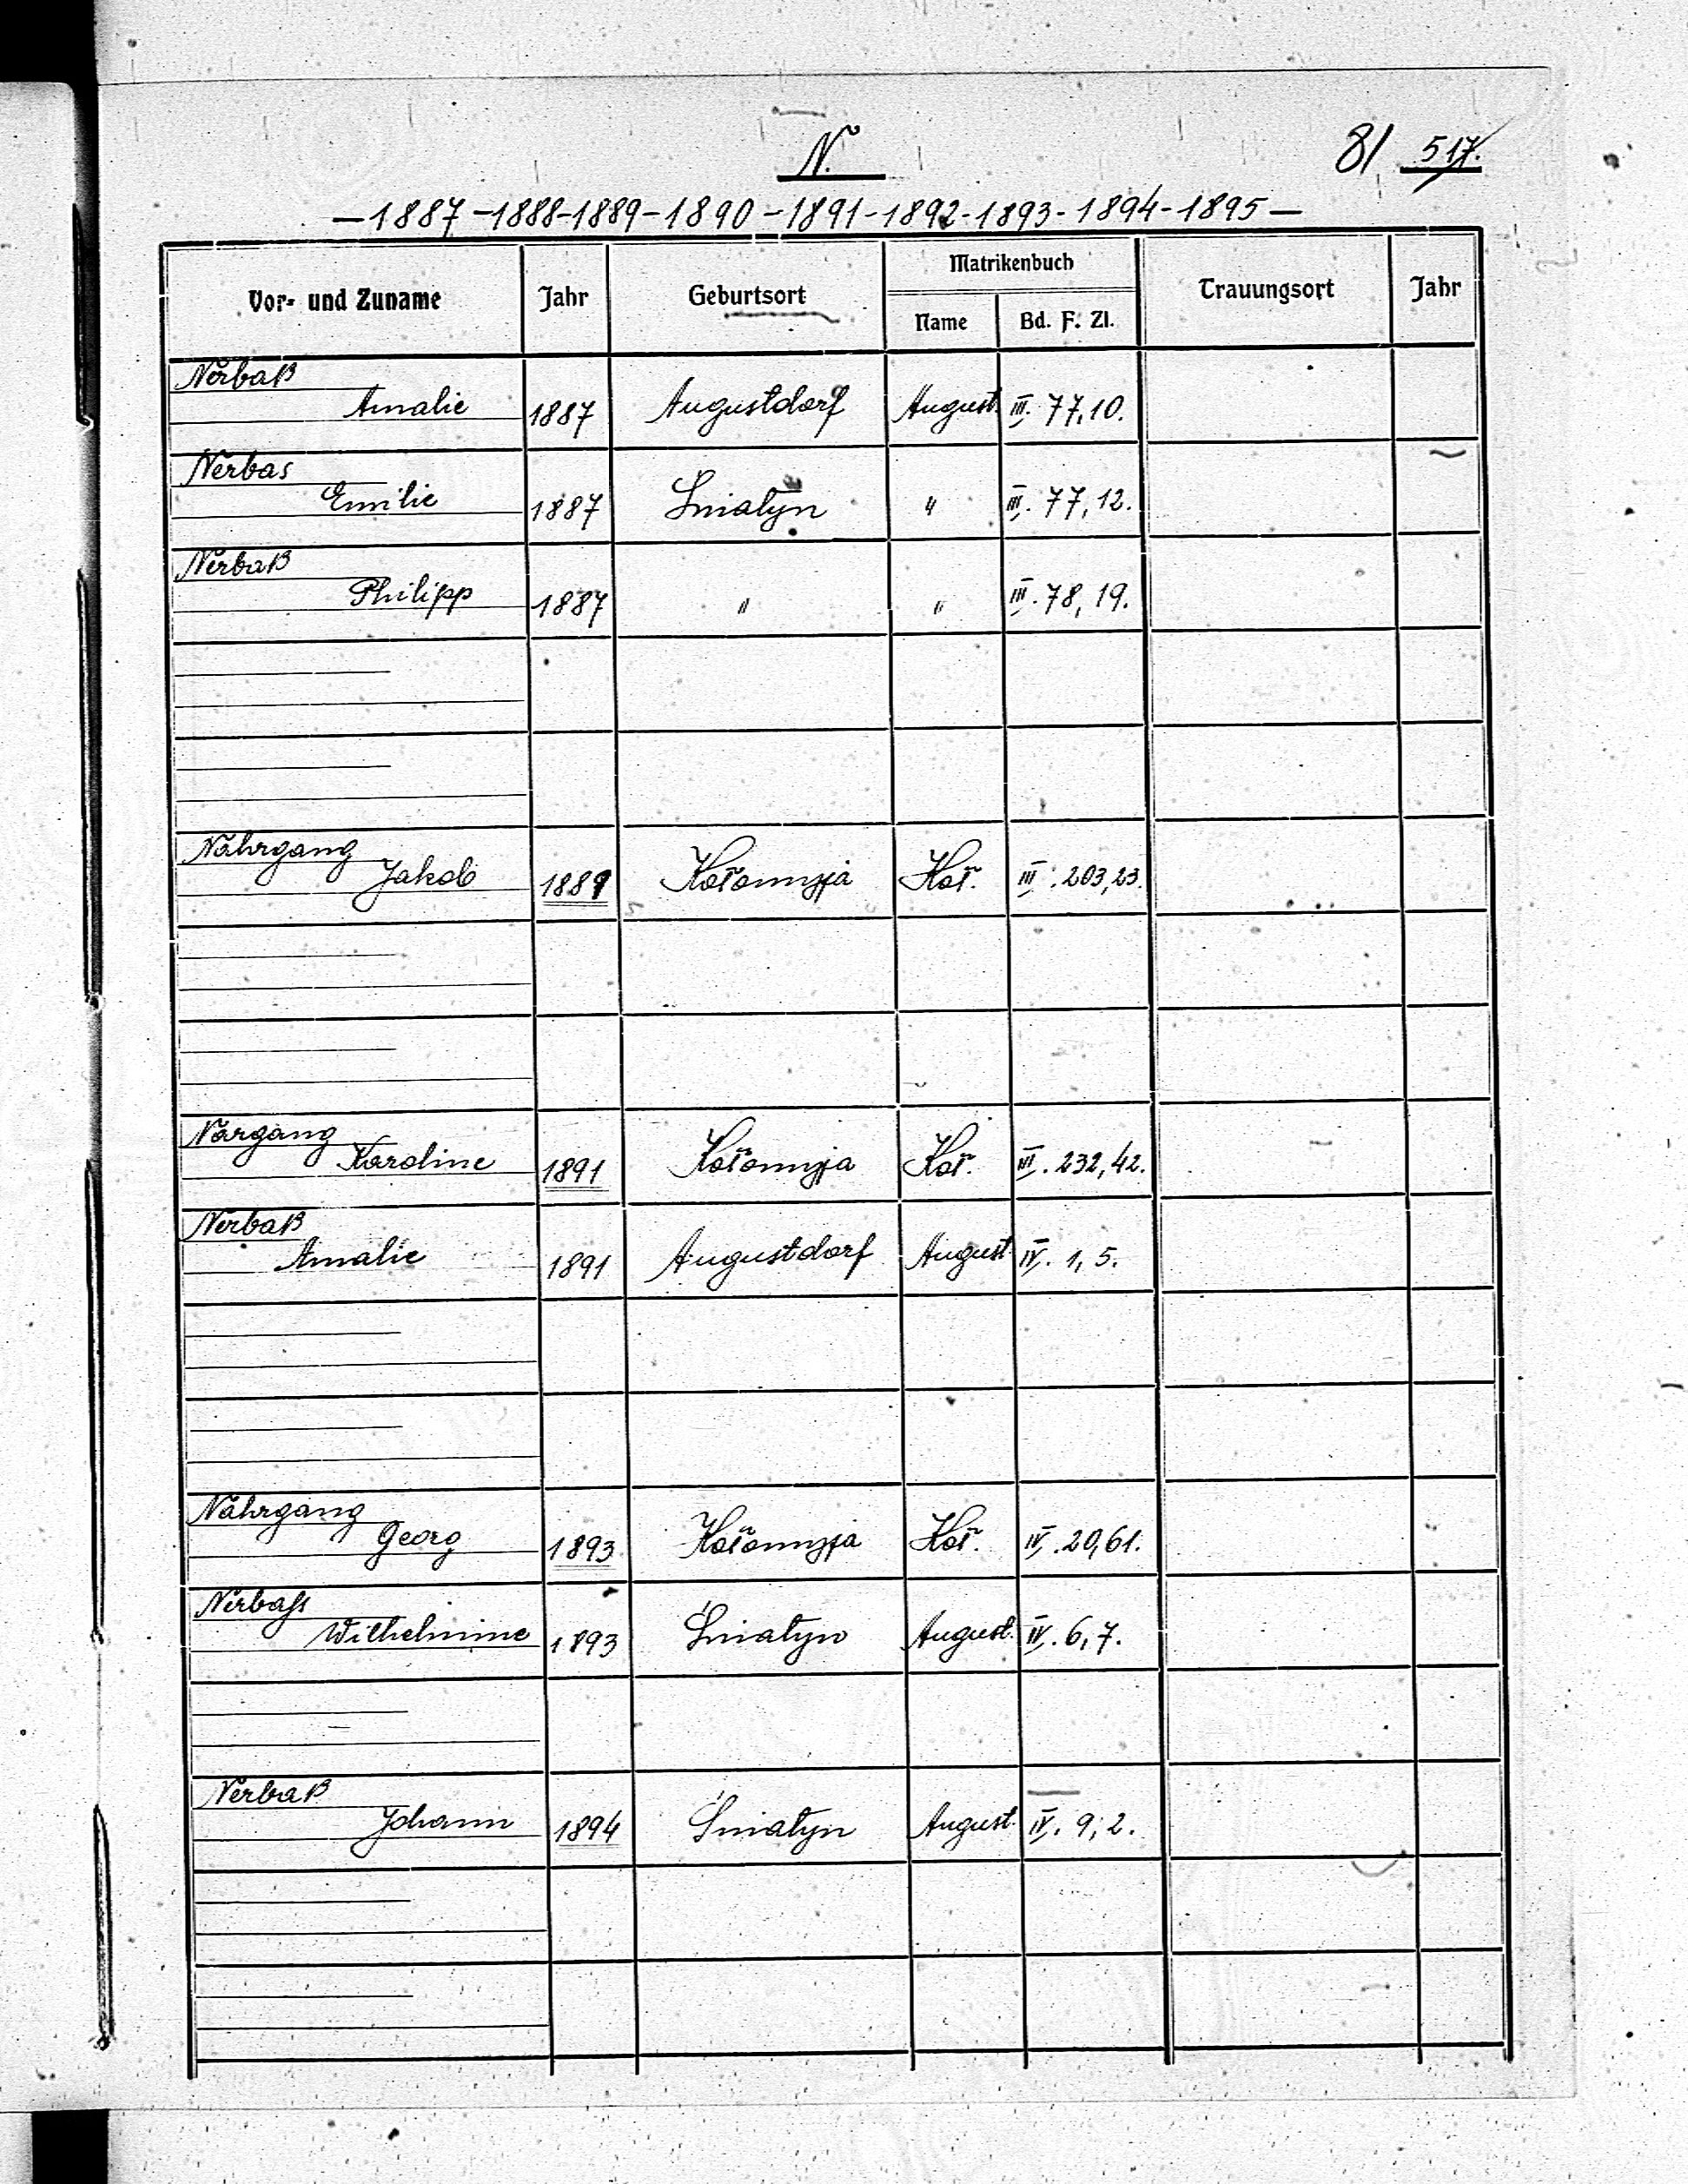 N.
81 517.
—1887-1888-1889-1890-1891-1892-1893-1894-1895—
Vor- und Zuname Jahr Geburtsort Matrikenbuch Trauungsort Jahr
Name Bd. F. Zl.
Nerbaß
Amalie 1887 Augustdorf August. III. 77, 10.
Nerbas
Emilie 1887 Śniatyn " III. 77, 12.
Nerbaß
Philipp 1887 " " III. 78, 19.
Nahrgang
Jakob 1889 Kołomyja Koł. III. 203, 23.
Nargang
Karoline 1891 Kołomyja Koł. III. 232, 42.
Nerbaß
Amalie 1891 Augustdorf August. IV. 1, 5.
Nahrgang
Georg 1893 Kołomyja Koł. IV. 20, 61.
Nerbass
Wilhelmine 1893 Śniatyn August. IV. 6, 7.
Nerbaß
Johann 1894 Śniatyn August. IV. 9, 2.